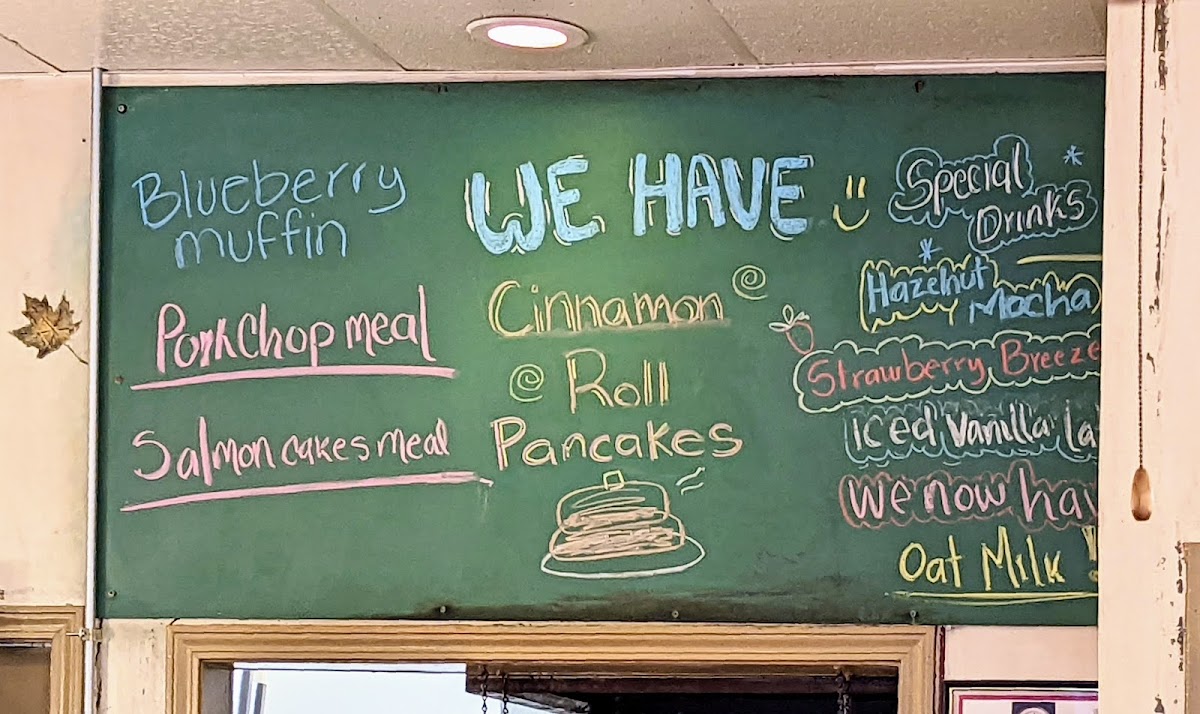 Blueberry
muffin
Porkchop meal
Salmon cakes meal
WE HAVE
Cinnamon
Roll
Pancakes
Special
Drinks
Hazelnut
Mocha
Strawberry Breeze
iced Vanilla La
we now hav
Oat Milk !